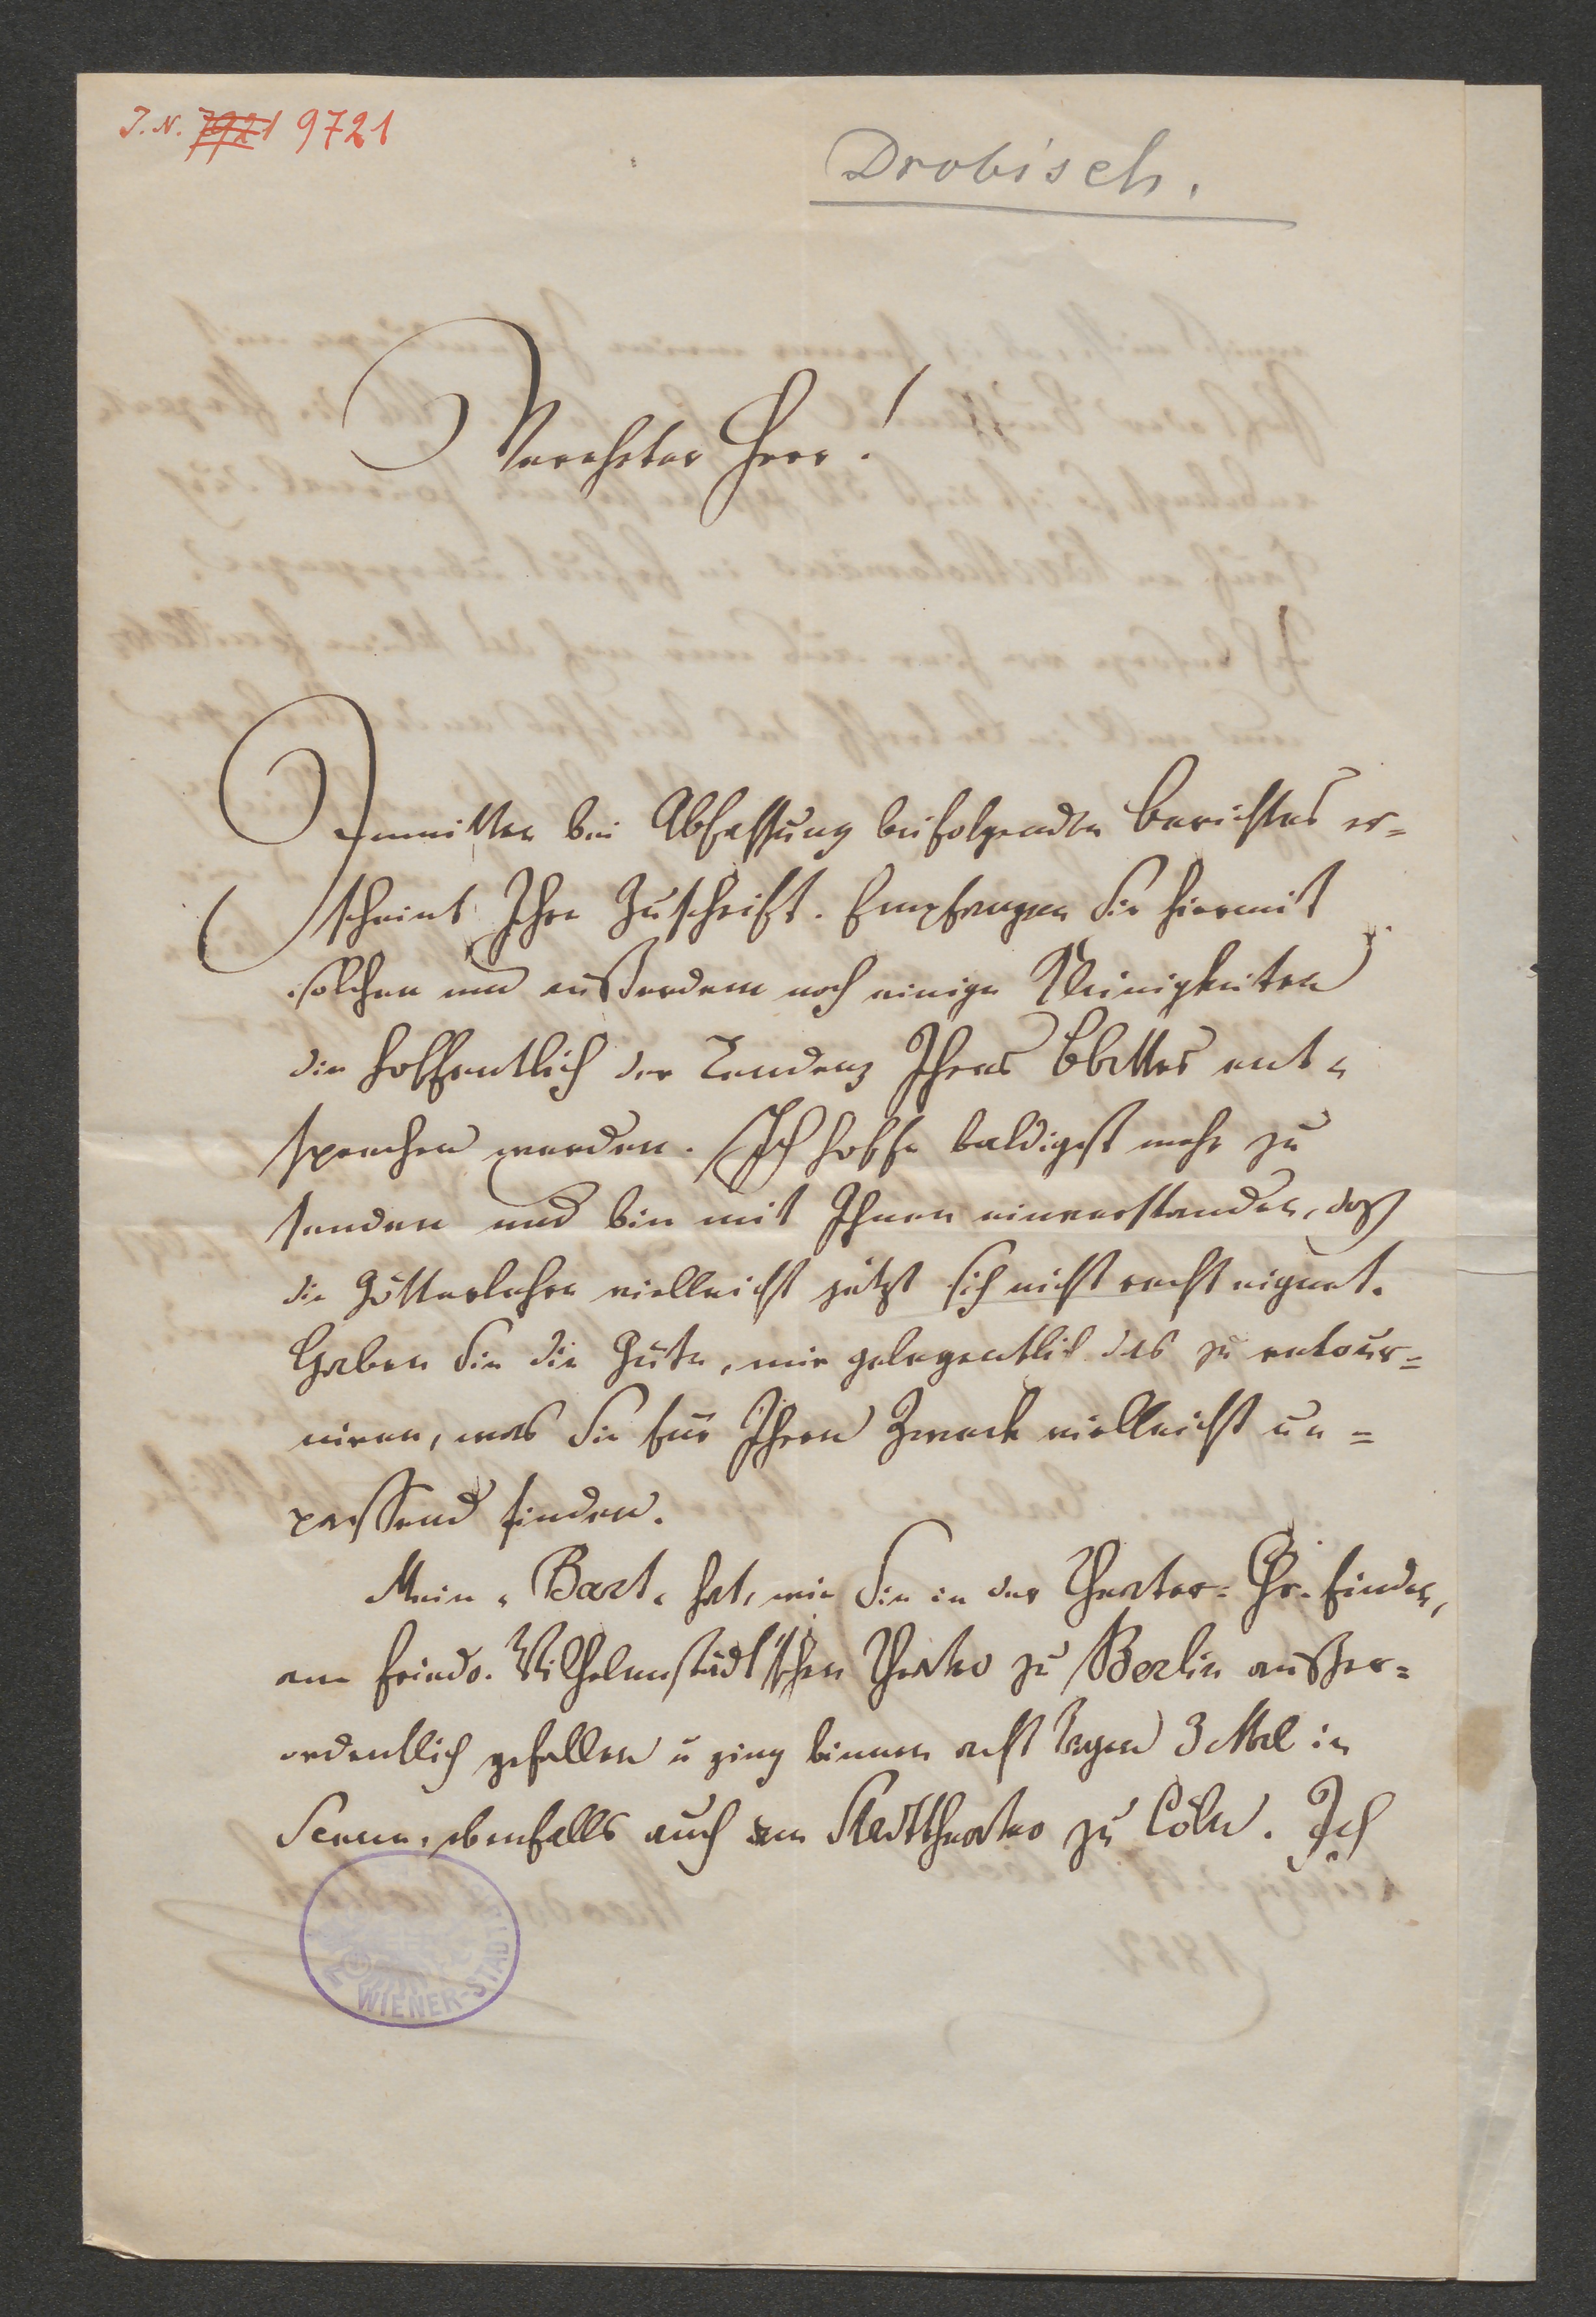 J. N. 7921 9721
Drobisch.
Verehrter Herr!
Inmitten bei Abfassung beifolgenden Berichtes er=
scheint Ihre Zuschrift. Empfangen Sie hiermit
solchen und außerdem noch einige Kleinigkeiten
die hoffentlich der Tendenz Ihres Blattes ent=
sprechen werden. Ich hoffe baldigst mehr zu
senden und bin mit Ihnen einverstanden, daß
die Götterlehre vielleicht jetzt sich nicht recht eignet.
Haben Sie die Güte, mir gelegentlich das zu retour=
niren, was Sie für Ihren Zweck vielleicht un=
passend finden.
Mein "Bart" hat, wie Sie in der Theater=Chr. finden,
am Friedr. Wilhelmstädt'schen Theater zu Berlin außer=
ordentlich gefallen u ging binnen acht Tagen 3 Mal in
Scene, ebenfalls auch am Stadttheater zu Cöln. Ich
WIENER-STADT